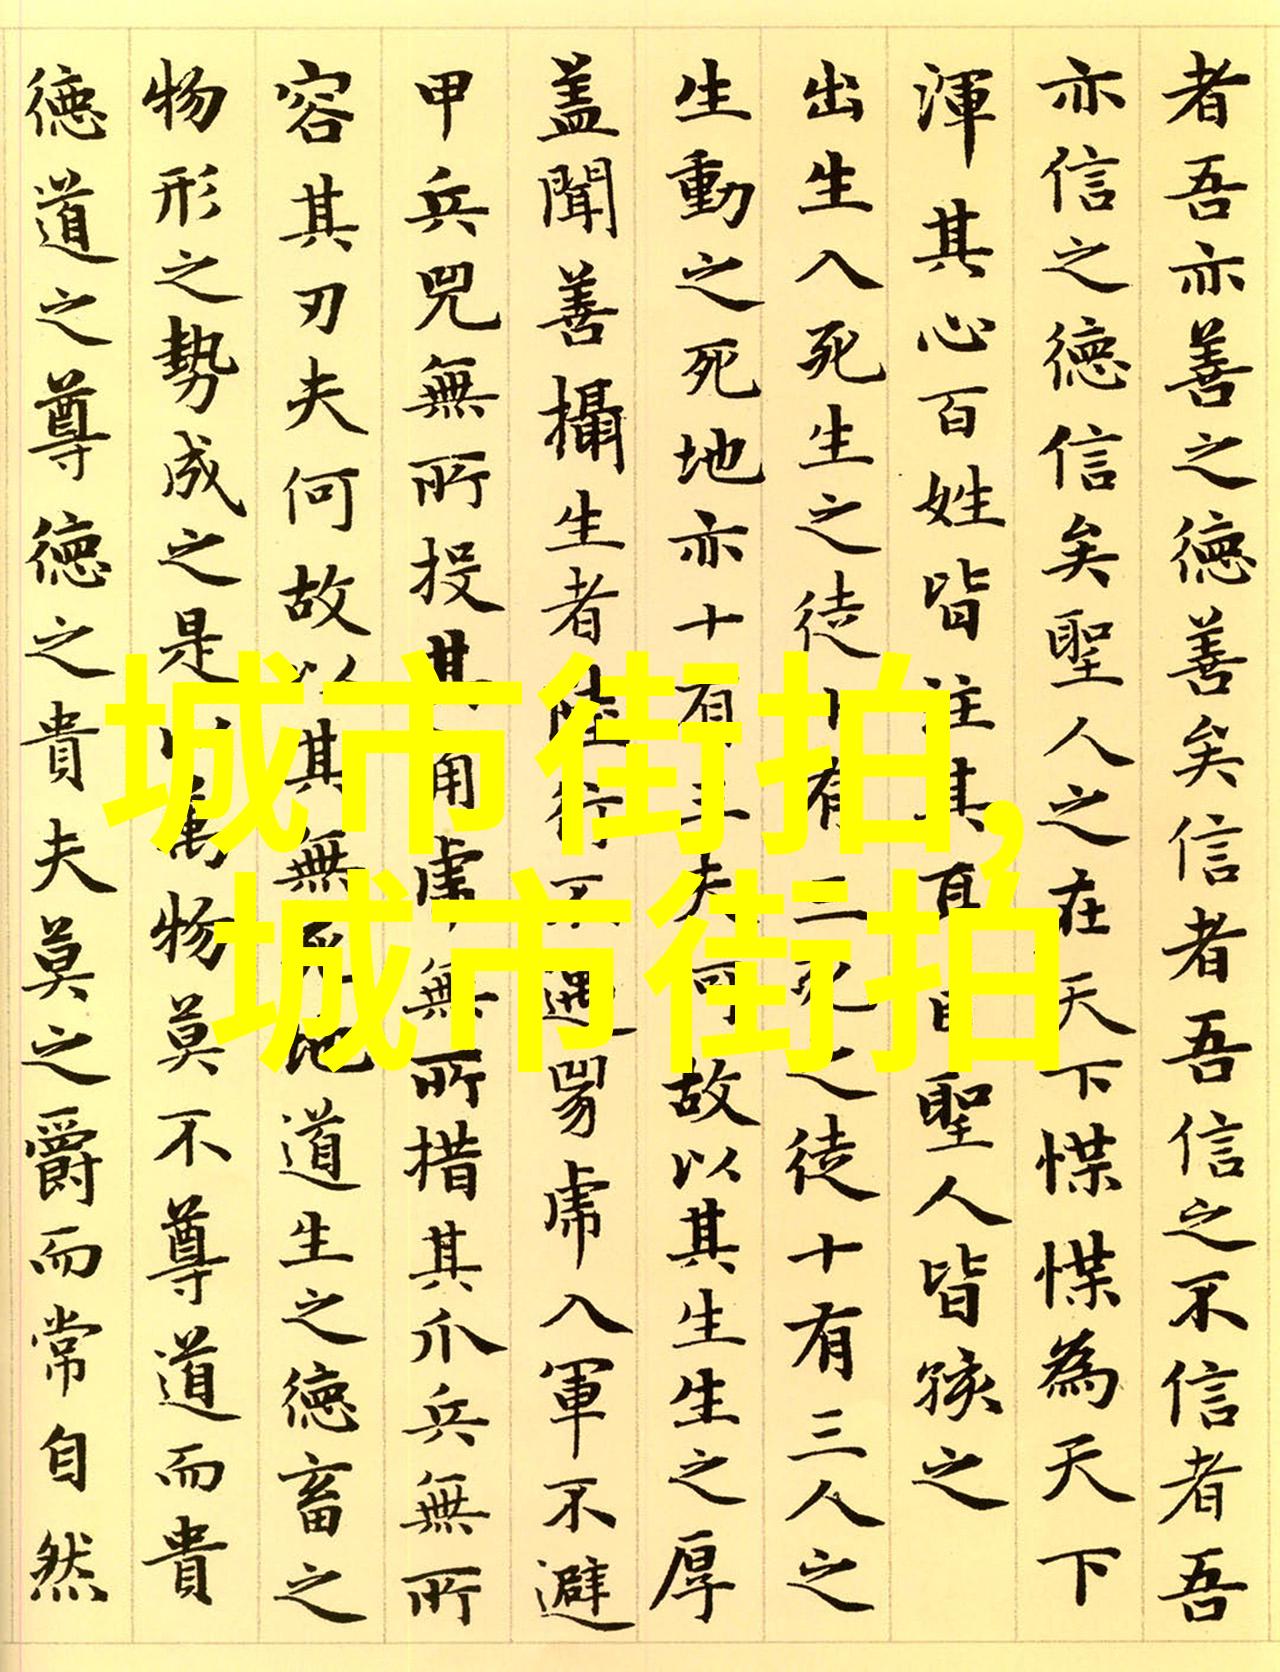 者吾亦善之德善矣信者吾信之不信者吾
亦信之德信矣聖人之在天下惵惵為天下
渾其心百姓皆注其耳目聖人皆孩之
出生入死生之徒十有三死之徒十有三人之
生動之死地亦十有三夫何故以其生生之厚
盖聞善攝生者陸行不遇兕虎入軍不避
甲兵兕無所投其角虎無所措其爪兵無所
容其刃夫何故以其無死地道生之德畜之
物形之勢成之是以萬物莫不尊道而貴
德道之尊德之貴夫莫之爵而常自然
城市街拍,
城市街拍